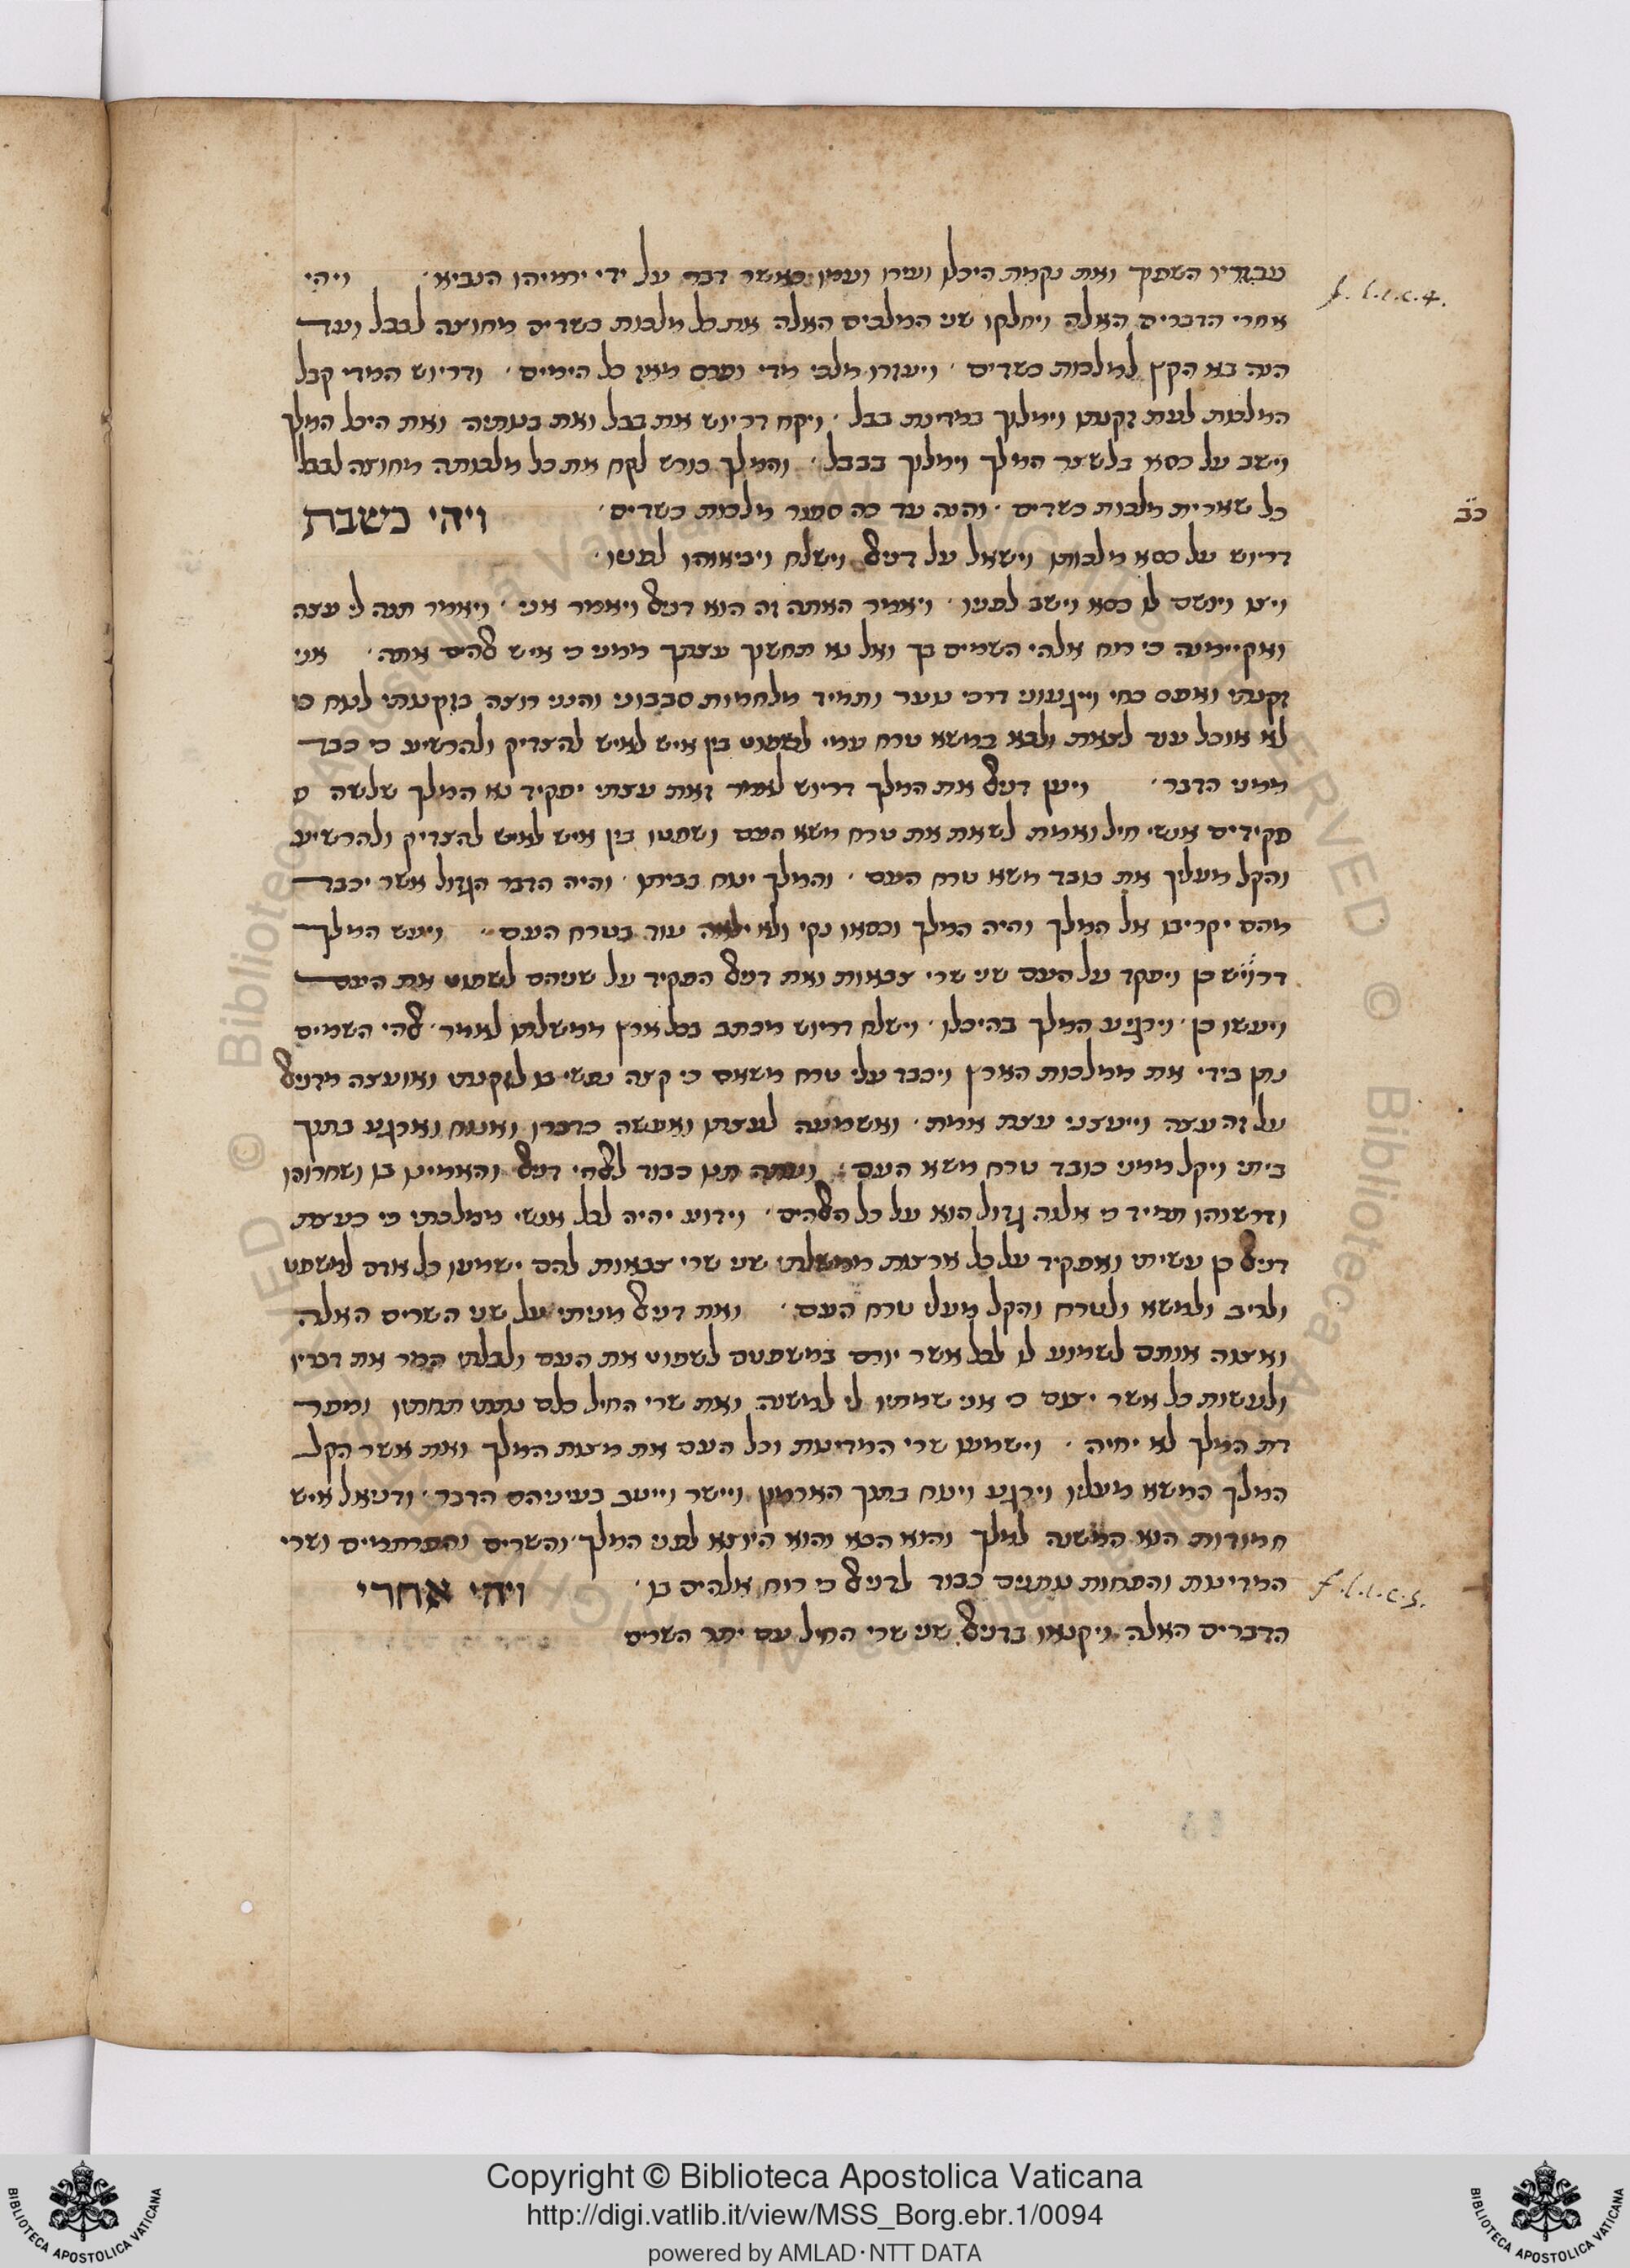 עבדיו השפוך ואת נקמת היכלו ועירו ועמו כאשר דבר על ידי ירמיהו הנביא׳ ויהי
f. l. 1. c. 4.
אחרי הדברים האלה ויחלקו שני המלכים האלה את כל מלכות כשדים מחוצה לבבל ועד
הנה בא הקץ למלכות כשדים׳ ויעזרו מלכי מדי ופרס מאז כל הימים׳ ודריוש המדי קבל
המלכות לעת זקנתו וימלוך במדינת בבל׳ ויקח דריוש את בבל ואת בנותיה ואת היכל המלך
וישב על כסא בלשצר המלך וימלוך בבבל׳ והמלך כורש לקח את כל מלכותה מחוצה לבבל
כל שארית מלכות כשדים׳ והנה עד כה ספור מלכות כשדים׳ ויהי כשבת
כב
דריוש על כסא מלכותו וישאל על דניאל וישלח ויביאוהו לפניו׳
ויצו וישם לו כסא וישב לפניו׳ ויאמר האתה זה הוא דניאל ויאמר אני׳ ויאמר תנה לי עצה
ואקיימנה כי רוח אלהי השמים בך ואל נא תחשוך עצתך ממני כי איש אלהים אתה׳ אני
זקנתי ואפס כחי וייגעוני דרכי נוער ותמיד מלחמות סבבוני והנני רוצה בזקנתי לנוח כי
לא אוכל עוד לצאת ולבא במשא טרח עמי לשפוט בין איש לאיש להצדיק ולהרשיע כי כבד
ממני הדבר׳ ויען דניאל את המלך דריוש לאמר זאת עצתי יפקיד נא המלך שלשה פ
פקידים אנשי חיל ואמת לשאת את טרח משא העם ושפטו בין איש לאיש להצדיק ולהרשיע
והקל מעליך את כובד משא טרח העם׳ והמלך ינוח בביתו׳ והיה הדבר הגדול אשר יכבד
מהם יקריבו אל המלך והיה המלך וכסאו נקי ולא ילאה עוד בטרח העם׳ ויעש המלך
דריוש כן ויפקד על העם שני שרי צבאות ואת דניאל הפקיד על שניהם לשפוט את העם
ויעשו כן׳ וירגיע המלך בהיכלו׳ וישלח דריוש מכתב בכל ארץ ממשלתו לאמר׳ אלהי השמים
נתן בידי את ממלכות הארץ ויכבד עלי טרח משאם כי קצה נפשי בו לזקנתי ואועצה מדניאל
על זה עצה וייעצני עצת אמת׳ ואשמעה לעצתו ואעשה כדברו ואנוח וארגע בתוך
ביתי ויקל ממני כובד טרח משא העם׳ ועתה תנו כבוד לאלהי דניאל והאמינו בו ושחרוהו
ודרשוהו תמיד כי אלוה גדול הוא על כל האלהים׳ וידוע יהיה לכל אנשי ממלכתי כי כעצת
דניאל כן עשיתי ואפקיד על כל ארצות ממשלתי שני שרי צבאות להם ישמעו כל אדם למשפט
ולריב ולמשא ולטרח והקל מעלי טרח העם׳ ואת דניאל מניתי על שני השרים האלה
ואצוה אותם לשמוע לו לכל אשר יורם במשפטם לשפוט את העם ולבלתי המר את דבריו
ולעשות כל אשר יצום כי אני שמתיו לי למשנה ואת שרי החיל כלם נתתי תחתיו ומפר
דת המלך לא יחיה׳ וישמעו שרי המדינות וכל העם את מצות המלך ואת אשר הקל
המלך המשא מעליו וירגע וינוח בתוך הארמון ויישר וייטב בעיניהם הדבר׳ ודניאל איש
חמודות הוא המשנה למלך והוא הבא והוא היוצא לפני המלך׳ והשרים והפרתמים ושרי
המדינות והפחות נותנים כבוד לדניאל כי רוח אלהים בו׳ ויהי אחרי
f. l. 1. c. 5.
הדברים האלה ויקנאו בדניאל שני שרי החיל עם יתר השרים
Copyright © Biblioteca Apostolica Vaticana
http://digi.vatlib.it/view/MSS_Borg.ebr.1/0094
powered by AMLAD·NTT DATA